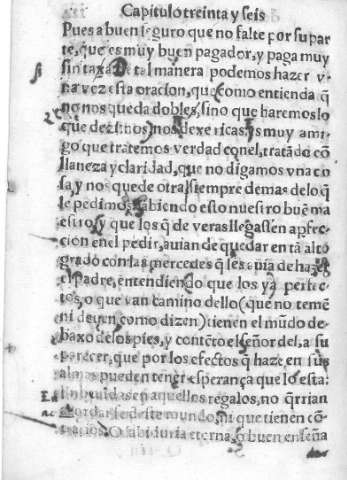 Capitulo treinta y seis
Pues a buen seguro que no falte por su par
te, que es muy buen pagador, y paga muy
sin taxa. De tal manera podemos hazer v-
na vez esta oracion, que como entienda q̃
no nos queda doblez, sino que haremos lo
que dezimos, nos dexe ricas. Es muy ami
go que tratemos verdad conel, tratãdo cõ
llaneza y claridad, que no digamos vna co
sa, y nos quede otra, siempre da mas delo q̃
le pedimos. Sabiendo esto nuestro buẽ ma
estro, y que los q̃ de veras llegassen a perfe-
cion enel pedir, auian de quedar en tã alto
grado con las mercedes q̃ les auia de hazer
el padre, entendiendo que los ya perfec-
tos, o que van camino dello (que no temẽ
ni deuen, como dizen) tienen el mũdo de-
baxo delos pies, y contẽto el señor del, a su
parecer, que por los efectos q̃ haze en sus
almas pueden tener esperança que lo esta:
embeuidas en aquellos regalos, no q̃rrian
acordarse deste mundo, ni que tienen cõ-
trarios. O sabiduria eterna, q̃ buen enseña
dor